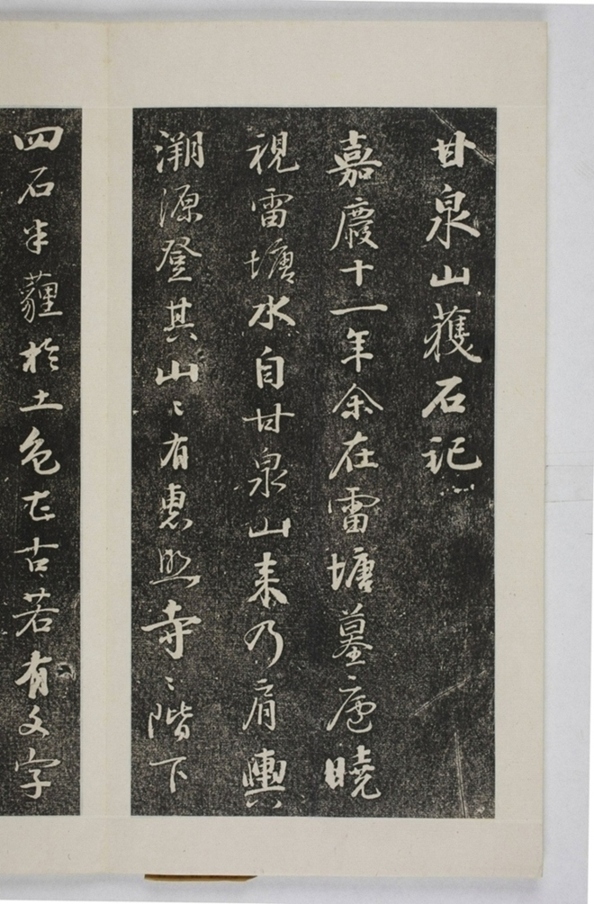 甘泉山获石记
嘉慶十一年余在雷塘墓廬曉
視雷塘水自甘泉山来乃肩輿
溯源登其山〻有惠照寺〻階下
四石半薶於土色甚古若有文字